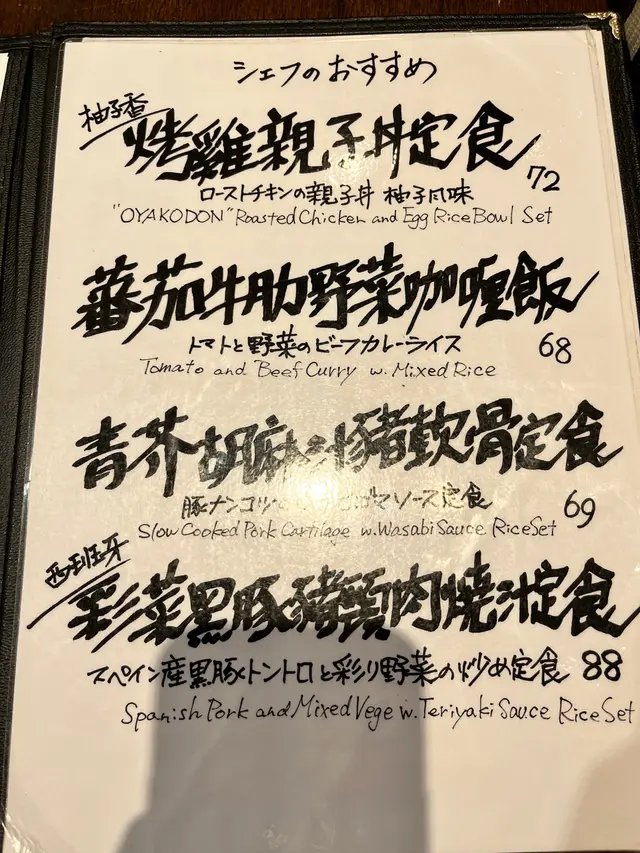 シェフのおすすめ
柚子香
烤雞親子丼定食
72
ローストチキンの親子丼 柚子風味
"OYAKODON" Roasted Chicken and Egg Rice Bowl Set
蕃茄牛肋野菜咖喱飯
68
トマトと野菜のビーフカレーライス
Tomato and Beef Curry w. Mixed Rice
青芥胡麻汁豬軟骨定食
69
豚ナンコツ ゴマソース定食
Slow Cooked Pork Cartilage w. Wasabi Sauce Rice Set
西班牙
彩菜黒豚豬頸肉燒汁定食
スペイン産黒豚トントロと彩り野菜の炒め定食 88
Spanish Pork and Mixed Vege w. Teriyaki Sauce Rice Set